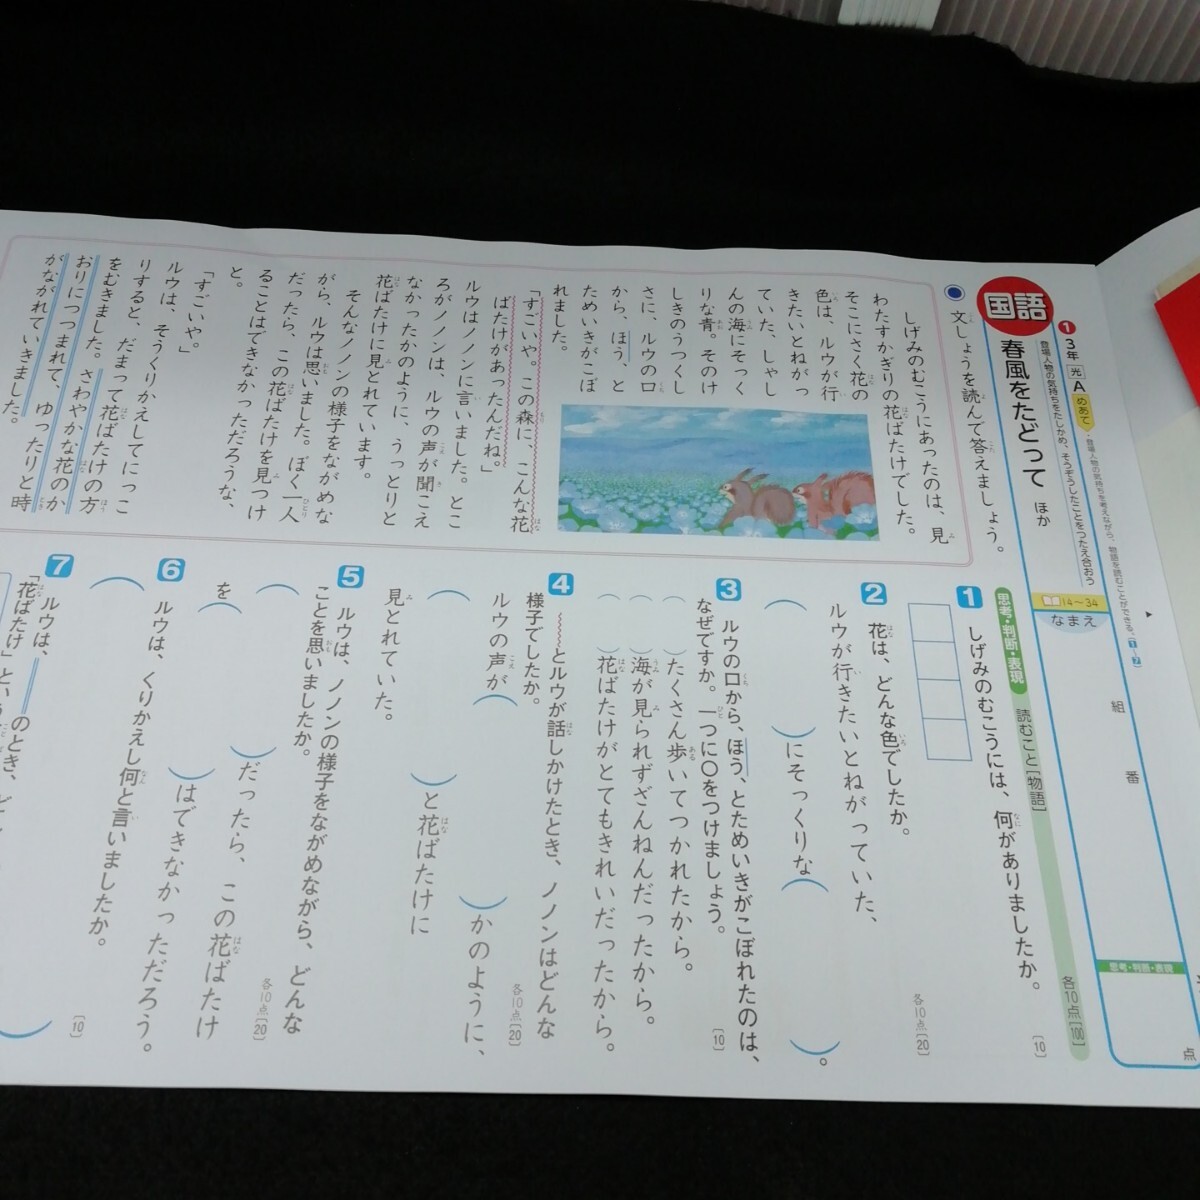 国語
❶ 3年 光 A
めあて
・登場人物の気持ちを考えながら、物語を読むことができる。(1〜7)
登場人物の気持ちをたしかめ、そうぞうしたことをつたえ合おう
春風をたどって ほか
教科書 14〜34
なまえ
組
番
思考・判断・表現
点
文しょうを読んで答えましょう。
しげみのむこうにあったのは、見
わたすかぎりの花ばたけでした。
そこにさく花の
色は、ルウが行
きたいとねがっ
ていた、しゃし
んの海にそっく
りな青。そのけ
しきのうつくし
さに、ルウの口
から、ほう、と
ためいきがこぼ
れました。
「すごいや。この森に、こんな花
ばたけがあったんだね。」
ルウはノノンに言いました。とこ
ろがノノンは、ルウの声が聞こえ
なかったかのように、うっとりと
花ばたけに見とれています。
そんなノノンの様子をながめな
がら、ルウは思いました。ぼく一人
だったら、この花ばたけを見つけ
ることはできなかっただろうな、
と。
「すごいや。」
ルウは、そうくりかえしてにっこ
りすると、だまって花ばたけの方
をむきました。さわやかな花のか
おりにつつまれて、ゆったりと時
がながれていきました。
思考・判断・表現 読むこと[物語] 各10点[100]
1 しげみのむこうには、何がありましたか。 [10]
2 花は、どんな色でしたか。 各10点[20]
ルウが行きたいとねがっていた、
( )にそっくりな( )。
3 ルウの口から、ほう、とためいきがこぼれたのは、
なぜですか。一つに○をつけましょう。 [10]
( )たくさん歩いてつかれたから。
( )海が見られずざんねんだったから。
( )花ばたけがとてもきれいだったから。
4 〜〜〜とルウが話しかけたとき、ノノンはどんな
様子でしたか。 各10点[20]
ルウの声が( )かのように、
( )と花ばたけに
見とれていた。
5 ルウは、ノノンの様子をながめながら、どんな
ことを思いましたか。 各10点[20]
( )だったら、この花ばたけ
を( )はできなかっただろう。
6 ルウは、くりかえし何と言いましたか。 [10]
( )
7 ルウは、＝＝＝のとき、
「花ばたけ」